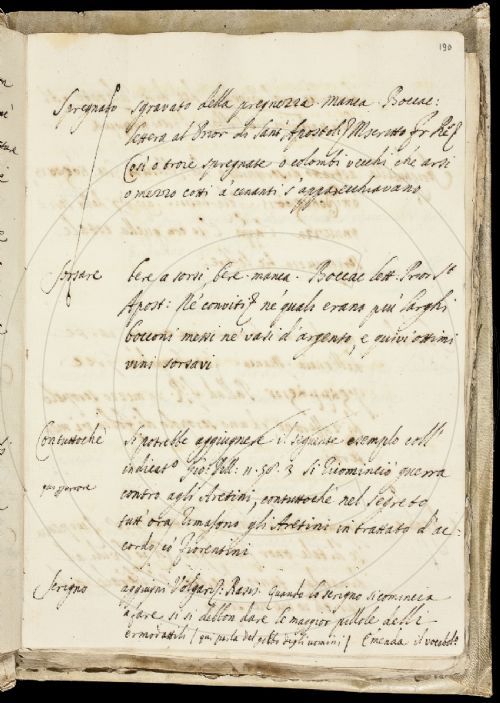 190
Spregnato sgravato della pregnezza. manca. Boccac:
lettera al Prior di Sant' Apostoli
Così o troie spregnate o colombi vecchi ché arsi
o mezzo cotti a cenanti s'apparecchiavano
Sorsare bere a sorsi, bere. manca. Boccac lett. Prior. S.t
Apost: Né conviti ne quali erano piu larghi
bocconi messi né vasi d'argento, e quivi ottimi
vini sorsavi
Contuttoché si potrebbe aggiugnere il seguente esempio coll'
indicato Gio: Vill: n. 58. 3 Si ricominciò guerra
contro agli Aretini, contuttoche nel segreto
tutt'ora rimasono gli Aretini in trattato d'ac-
cordo co' Fiorentini
Serigno aggiugni Volgariz: Rasis. Quando lo serigno si comincia
a fare si si debbon dare le maggior pillole delli
ermodattili / qui parla del gobbo degli uomini /